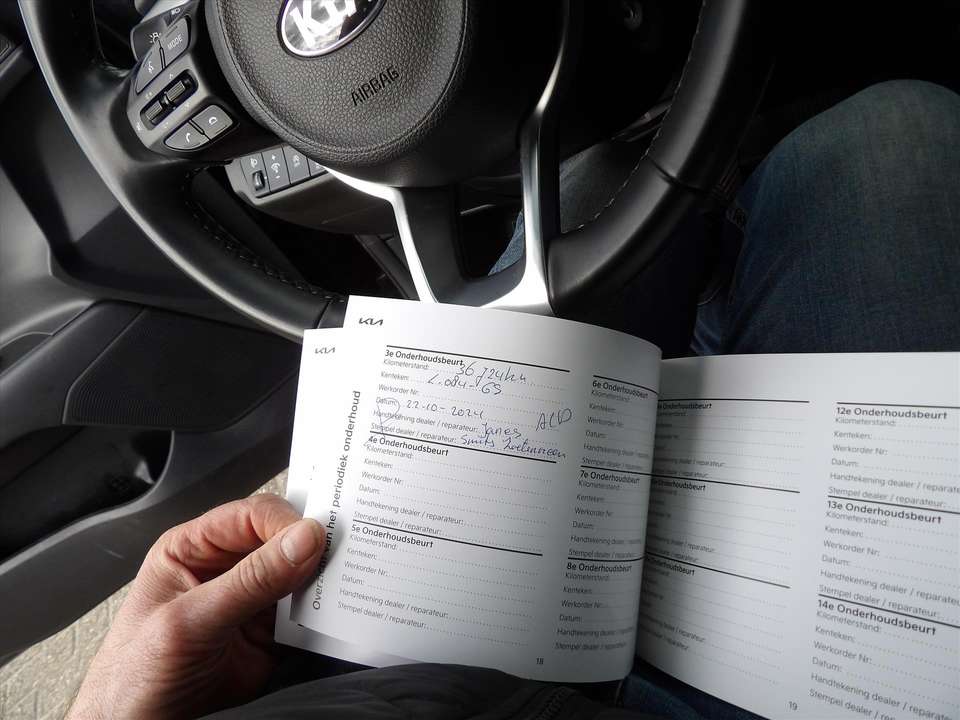 KIA
MODE
AIRBAG
KIA
KIA
Overzicht van het periodiek onderhoud
3e Onderhoudsbeurt
Kilometerstand: 36 724 km
Kenteken: L.084-GS
Werkorder Nr:
Datum: 22-10-2024
Handtekening dealer / reparateur: Janes ALD
Stempel dealer / reparateur: Smits
4e Onderhoudsbeurt
Kilometerstand:
Kenteken:
Werkorder Nr:
Datum:
Handtekening dealer / reparateur:
Stempel dealer / reparateur:
5e Onderhoudsbeurt
Kilometerstand:
Kenteken:
Werkorder Nr:
Datum:
Handtekening dealer / reparateur:
Stempel dealer / reparateur:
6e Onderhoudsbeurt
Kilometerstand:
Kenteken:
Werkorder Nr:
Datum:
Handtekening dealer
Stempel dealer / reparateur
7e Onderhoudsbeurt
Kilometerstand:
Kenteken:
Werkorder Nr:
Datum:
Handtekening dealer
Stempel dealer / reparateur
8e Onderhoudsbeurt
Kilometerstand:
Kenteken:
Werkorder Nr:
Datum:
Handtekening dealer / reparateur
Stempel dealer / reparateur
18
Onderhoudsbeurt
dealer / reparateur:
dealer / reparateur:
Onderhoudsbeurt
dealer / reparateur:
dealer / reparateur:
Onderhoudsbeurt
dealer / reparateur:
dealer / reparateur:
12e Onderhoudsbeurt
Kilometerstand:
Kenteken:
Werkorder Nr:
Datum:
Handtekening dealer / reparateur
Stempel dealer / reparateur:
13e Onderhoudsbeurt
Kilometerstand:
Kenteken:
Werkorder Nr:
Datum:
Handtekening dealer / reparateur:
Stempel dealer / reparateur:
14e Onderhoudsbeurt
Kilometerstand:
Kenteken:
Werkorder Nr:
Datum:
Handtekening dealer / reparateur:
Stempel dealer / reparateur:
19